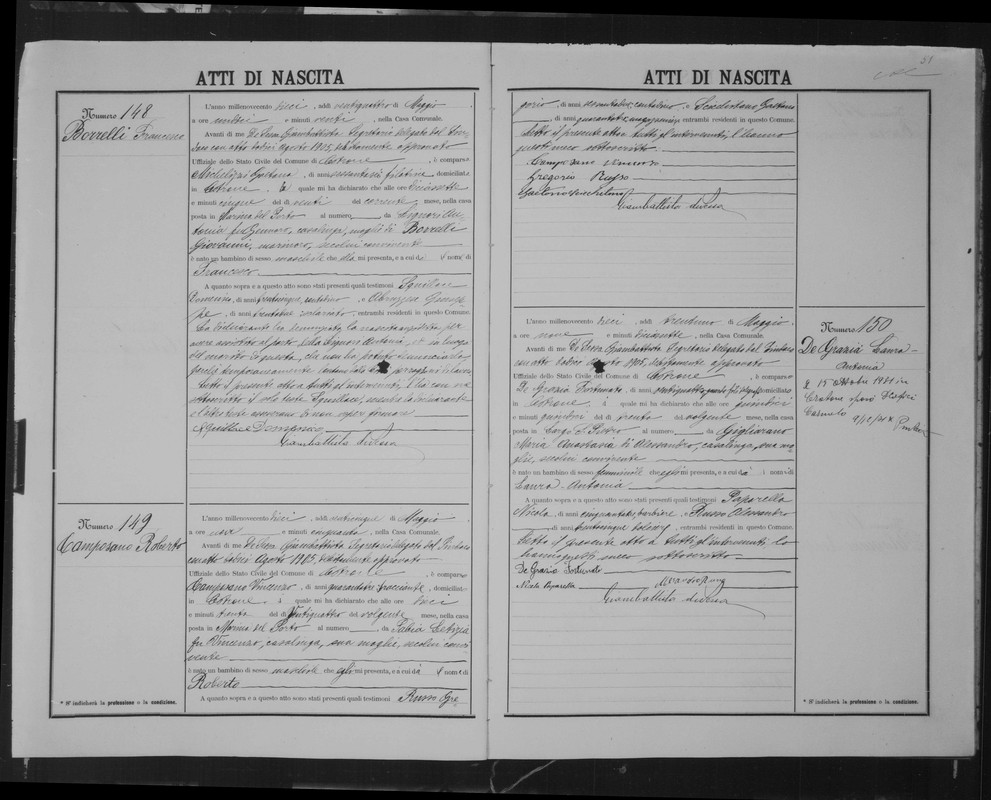 ATTI DI NASCITA
Numero 148
Borrelli Francesco
L'anno millenovecento dieci, addì ventiquattro di Maggio
a ore undici e minuti venti, nella Casa Comunale.
Avanti di me De Sessa Giambattista Segretario delegato dal Sindaco
con atto tredici Agosto 1905, debitamente approvato
Uffiziale dello Stato Civile del Comune di Cotrone, è comparsa
Michelizzi Gaetana, di anni sessantasei filatrice, domiciliata
in Cotrone, la quale mi ha dichiarato che alle ore diciassette
e minuti cinque del dì venti del corrente mese, nella casa
posta in Marina del Porto al numero da Liguori An-
tonia fu Gennaro, casalinga, moglie di Borrelli
Giovanni, marinaro, secolui convivente
è nato un bambino di sesso maschile che ella mi presenta, e a cui dà il nome di
Francesco
A quanto sopra e a questo atto sono stati presenti quali testimoni Squillace
Domenico, di anni trentacinque, e Abruzza Giusep-
pe, di anni, entrambi residenti in questo Comune.
La dichiarante ha denunziato la nascita suddetta per
avere assistito al parto della Liguori Antonia, ed in luogo
del marito di questa, che non ha potuto denunciarla
Letto il presente atto a tutti gl'intervenuti, l'ha con me
sottoscritto il solo teste Squillace, mentre la dichiarante
e l'altro teste asserirono di non sapere firmare
Squillace Domenico
Giambattista di Sessa
Numero 149
Camposano Roberto
L'anno millenovecento dieci, addì venticinque di Maggio
a ore nove e minuti cinquanta, nella Casa Comunale.
Avanti di me De Sessa Giambattista Segretario delegato dal Sindaco
con atto tredici Agosto 1905, debitamente approvato
Uffiziale dello Stato Civile del Comune di Cotrone, è comparso
Camposano Vincenzo, di anni quarantatre bracciante, domiciliato
in Cotrone, il quale mi ha dichiarato che alle ore dieci
e minuti trenta del dì ventiquattro del volgente mese, nella casa
posta in Marina del Porto al numero da Pabia Letizia
fu Vincenzo, casalinga, sua moglie, secolui convi-
vente
è nato un bambino di sesso maschile che egli mi presenta, e a cui dà il nome di
Roberto
A quanto sopra e a questo atto sono stati presenti quali testimoni Russo Gre
* Si indicherà la professione o la condizione.
ATTI DI NASCITA
51
gorio, di anni, e Scuderitano Gaetano
di anni, entrambi residenti in questo Comune.
Letto il presente atto a tutti gl'intervenuti, l'hanno
questi meco sottoscritto
Camposano Vincenzo
Gregorio Russo
Giambattista di Sessa
Numero 150
De Grazia Laura-
Antonia
L'anno millenovecento dieci, addì trentuno di Maggio
a ore nove e minuti diciassette, nella Casa Comunale.
Avanti di me De Sessa Giambattista Segretario delegato dal Sindaco
con atto tredici Agosto 1905, debitamente approvato
Uffiziale dello Stato Civile del Comune di Cotrone, è comparso
De Grazia Fortunato, di anni, domiciliato
in Cotrone, il quale mi ha dichiarato che alle ore quindici
e minuti quindici del dì trenta del volgente mese, nella casa
posta in Largo S. Pietro al numero da Gigliarano
Maria Anastasia di Alessandro, casalinga, sua mo-
glie, secolui convivente
è nato un bambino di sesso femminile che egli mi presenta, e a cui dà i nomi di
Laura-Antonia
A quanto sopra e a questo atto sono stati presenti quali testimoni Paparella
Nicola, di anni cinquantasei, barbiere, e Russo Alessandro
di anni trentacinque, entrambi residenti in questo Comune.
Letto il presente atto a tutti gl'intervenuti, lo
hanno questi meco sottoscritto
De Grazia Fortunato
Nicola Paparella
Giambattista di Sessa
* Si indicherà la professione o la condizione.